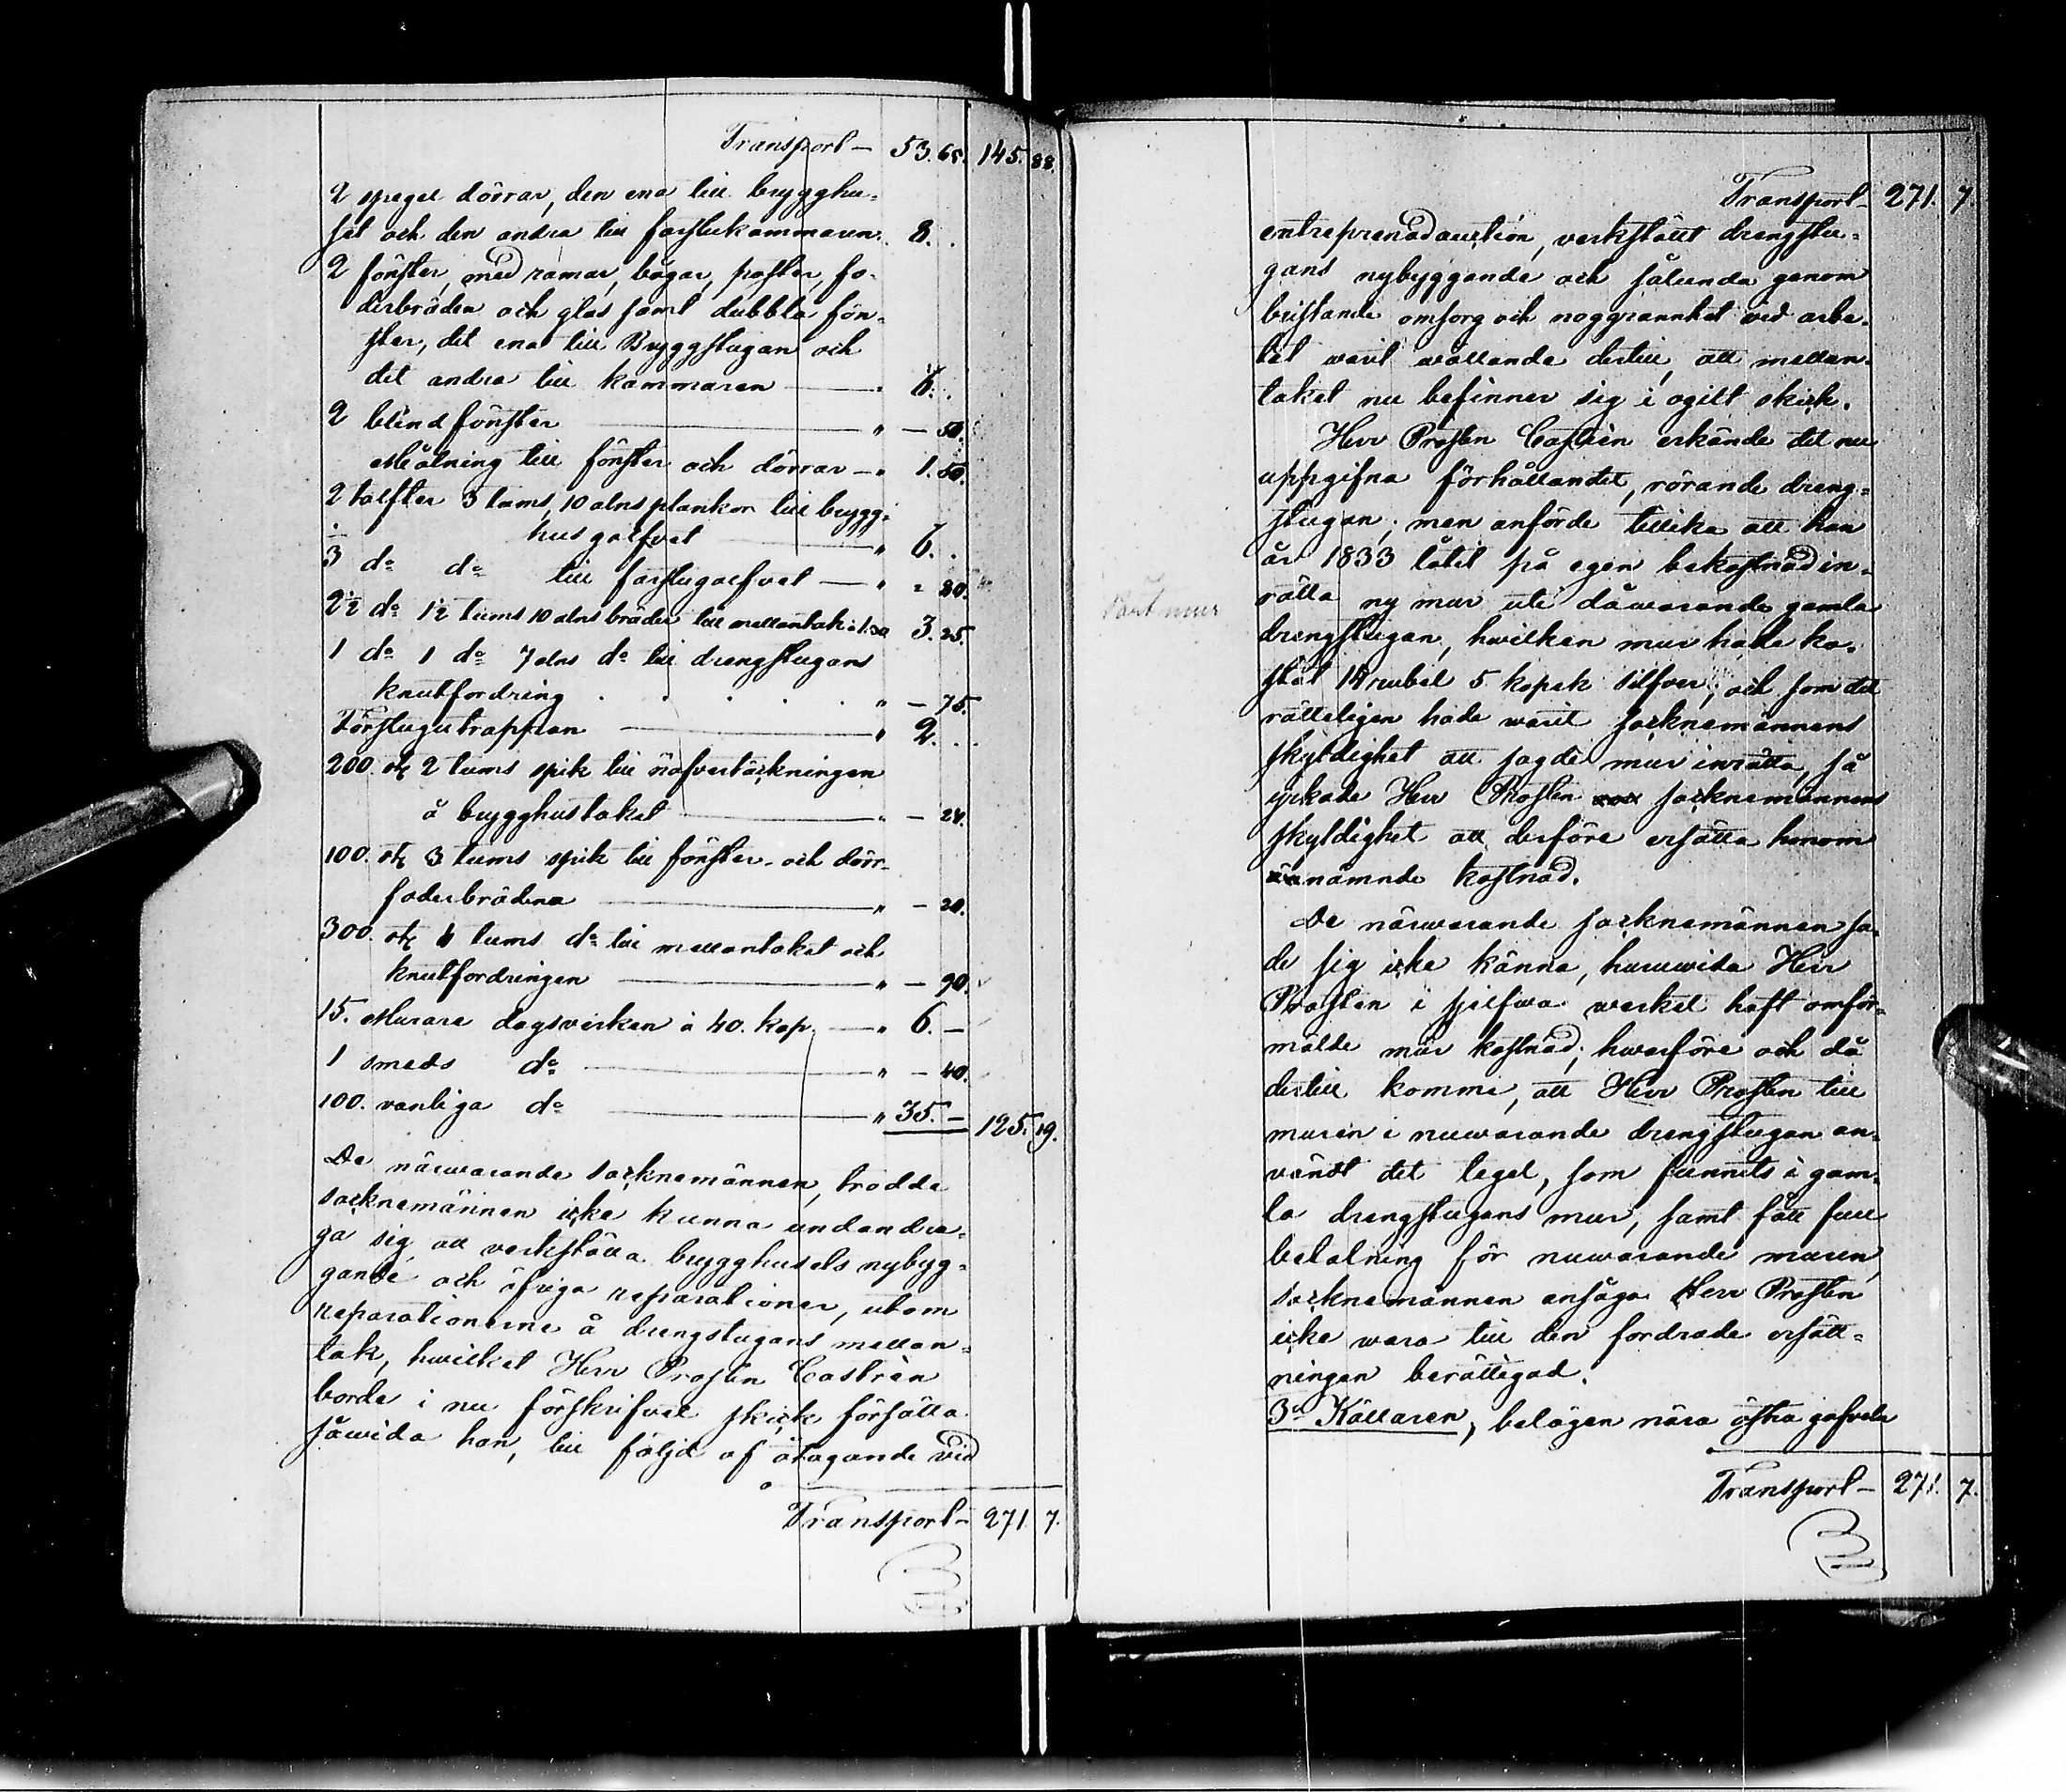 Transport — 53. 65. 145. 88.
2 spegel dörrar, den ena till brygghu-
set och den andra till farstukammaren. 8. .
2 fönster, med ramar, bågar, poster, fo-
derbräden och glas samt dubbla fön-
ster, det ena till Bryggstugan och
det andra till kammaren — " 6. .
2 blindfönster — " — 50.
Målning till fönster och dörrar — " 1. 50.
2 tolfter 3 tums, 10 alns plankor till brygg-
husgolfvet — " 6. .
do do till farstugolfvet — " " 80.
2½ do 1½ tums 10 alns bräder till mellantak à 1.30 3. 25.
1 do 1 do 7 alns do till drengstugans
knutfordring . . . . . " — 75.
Förstugutrappan — " 2. .
200. st. 2 tums spik till näfvertäckningen
å brygghustaket — " — 24.
100. st. 3 tums spik till fönster- och dörr-
foderbrädena — " — 20.
300. st. 4 tums do till mellantaket och
knutfordringen — " — 90.
15. Murare dagsverken à 40. kop. — " 6. —
1 smeds do — " — 40.
100. vanliga do — " 35. — 125. 19.
De närwarande socknemännen, trodde
socknemännen icke kunna undandra-
ga sig att verkställa brygghusets nybyg-
gande och öfriga reparationer, utom
reparationerne å drengstugans mellan-
tak, hwilket Herr Prosten Castrén
borde i nu förskrifvet skick försätta
såwida han, till följd af åtagande vid
Transport — 271. 7.
Transport — 271. 7
entreprenadauction, verkställt drengstu-
gans nybyggande och sålunda genom
bristande omsorg och noggrannhet vid arbe-
tet warit wållande dertill, att mellan-
taket nu befinner sig i ogilt skick.
Herr Prosten Castrén erkände det nu
uppgifna förhållandet, rörande dreng-
stugan; men anförde tillika att han
år 1833 låtit på egen bekostnad in-
rätta ny mur uti dåwarande gamla
drengstugan, hwilken mur hade ko-
stat rubel 5 kopek silfver; och som det
rätteligen hade warit socknemännens
skyldighet att sagde mur inrätta, så
yrkade Herr Prosten socknemännens
skyldighet att derföre ersätta honom
nämnde kostnad.
De närwarande socknemännen sa-
de sig icke känna, huruwida Herr
Prosten i sjelfwa werket haft omför-
mälde mur kostnad; hwarföre och då
dertill komme, att Herr Prosten till
muren i nuwarande drengstugan an-
vändt det tegel, som funnits i gam-
la drengstugans mur, samt fått full
betalning för nuwarande muren,
socknemännen ansågo Herr Prosten
icke wara till den fordrade ersätt-
ningen berättigad.
3o Källaren, belägen nära östra gafveln
Transport — 271. 7.